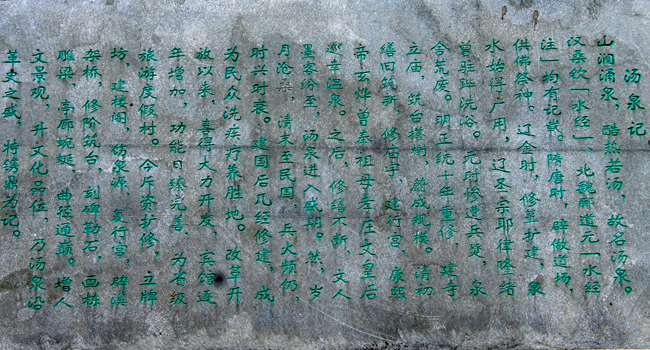 汤泉记
山涧涌泉，酷热若汤，故名汤泉。
汉桑钦《水经》、北魏郦道元《水经
注》均有记载。隋唐时，辟做道场，
供佛祭神。辽金时，修葺扩建，泉
水始得广用，辽圣宗耶律隆绪
曾驻跸洗浴。元时惨遭兵燹，泉
舍荒废。明正统十年重修，建寺
立庙，筑台搭榭，蔚成规模。清初
缮旧筑新，修庙宇，建行宫，康熙
帝玄烨曾奉祖母孝庄文皇后
巡幸温泉。之后，修缮不断，文人
墨客纷至，汤泉进入盛期。然，岁
月沧桑，清末至民国，兵火频仍，
时兴时衰。建国后几经修建，成
为民众洗疾疗养胜地。改革开
放以来，喜得大力开发，宾馆逐
年增加，功能日臻完善，为省级
旅游度假村。今斥资扩修，立牌
坊，建楼阁，纺泉源，复行宫，辟溪
架桥，修阶筑台，刻碑勒石，画栋
雕梁，亭廊蜿蜒，曲径通巅。增人
文景观，升文化品位，乃汤泉沿
革史之盛，特镌鼎为记。